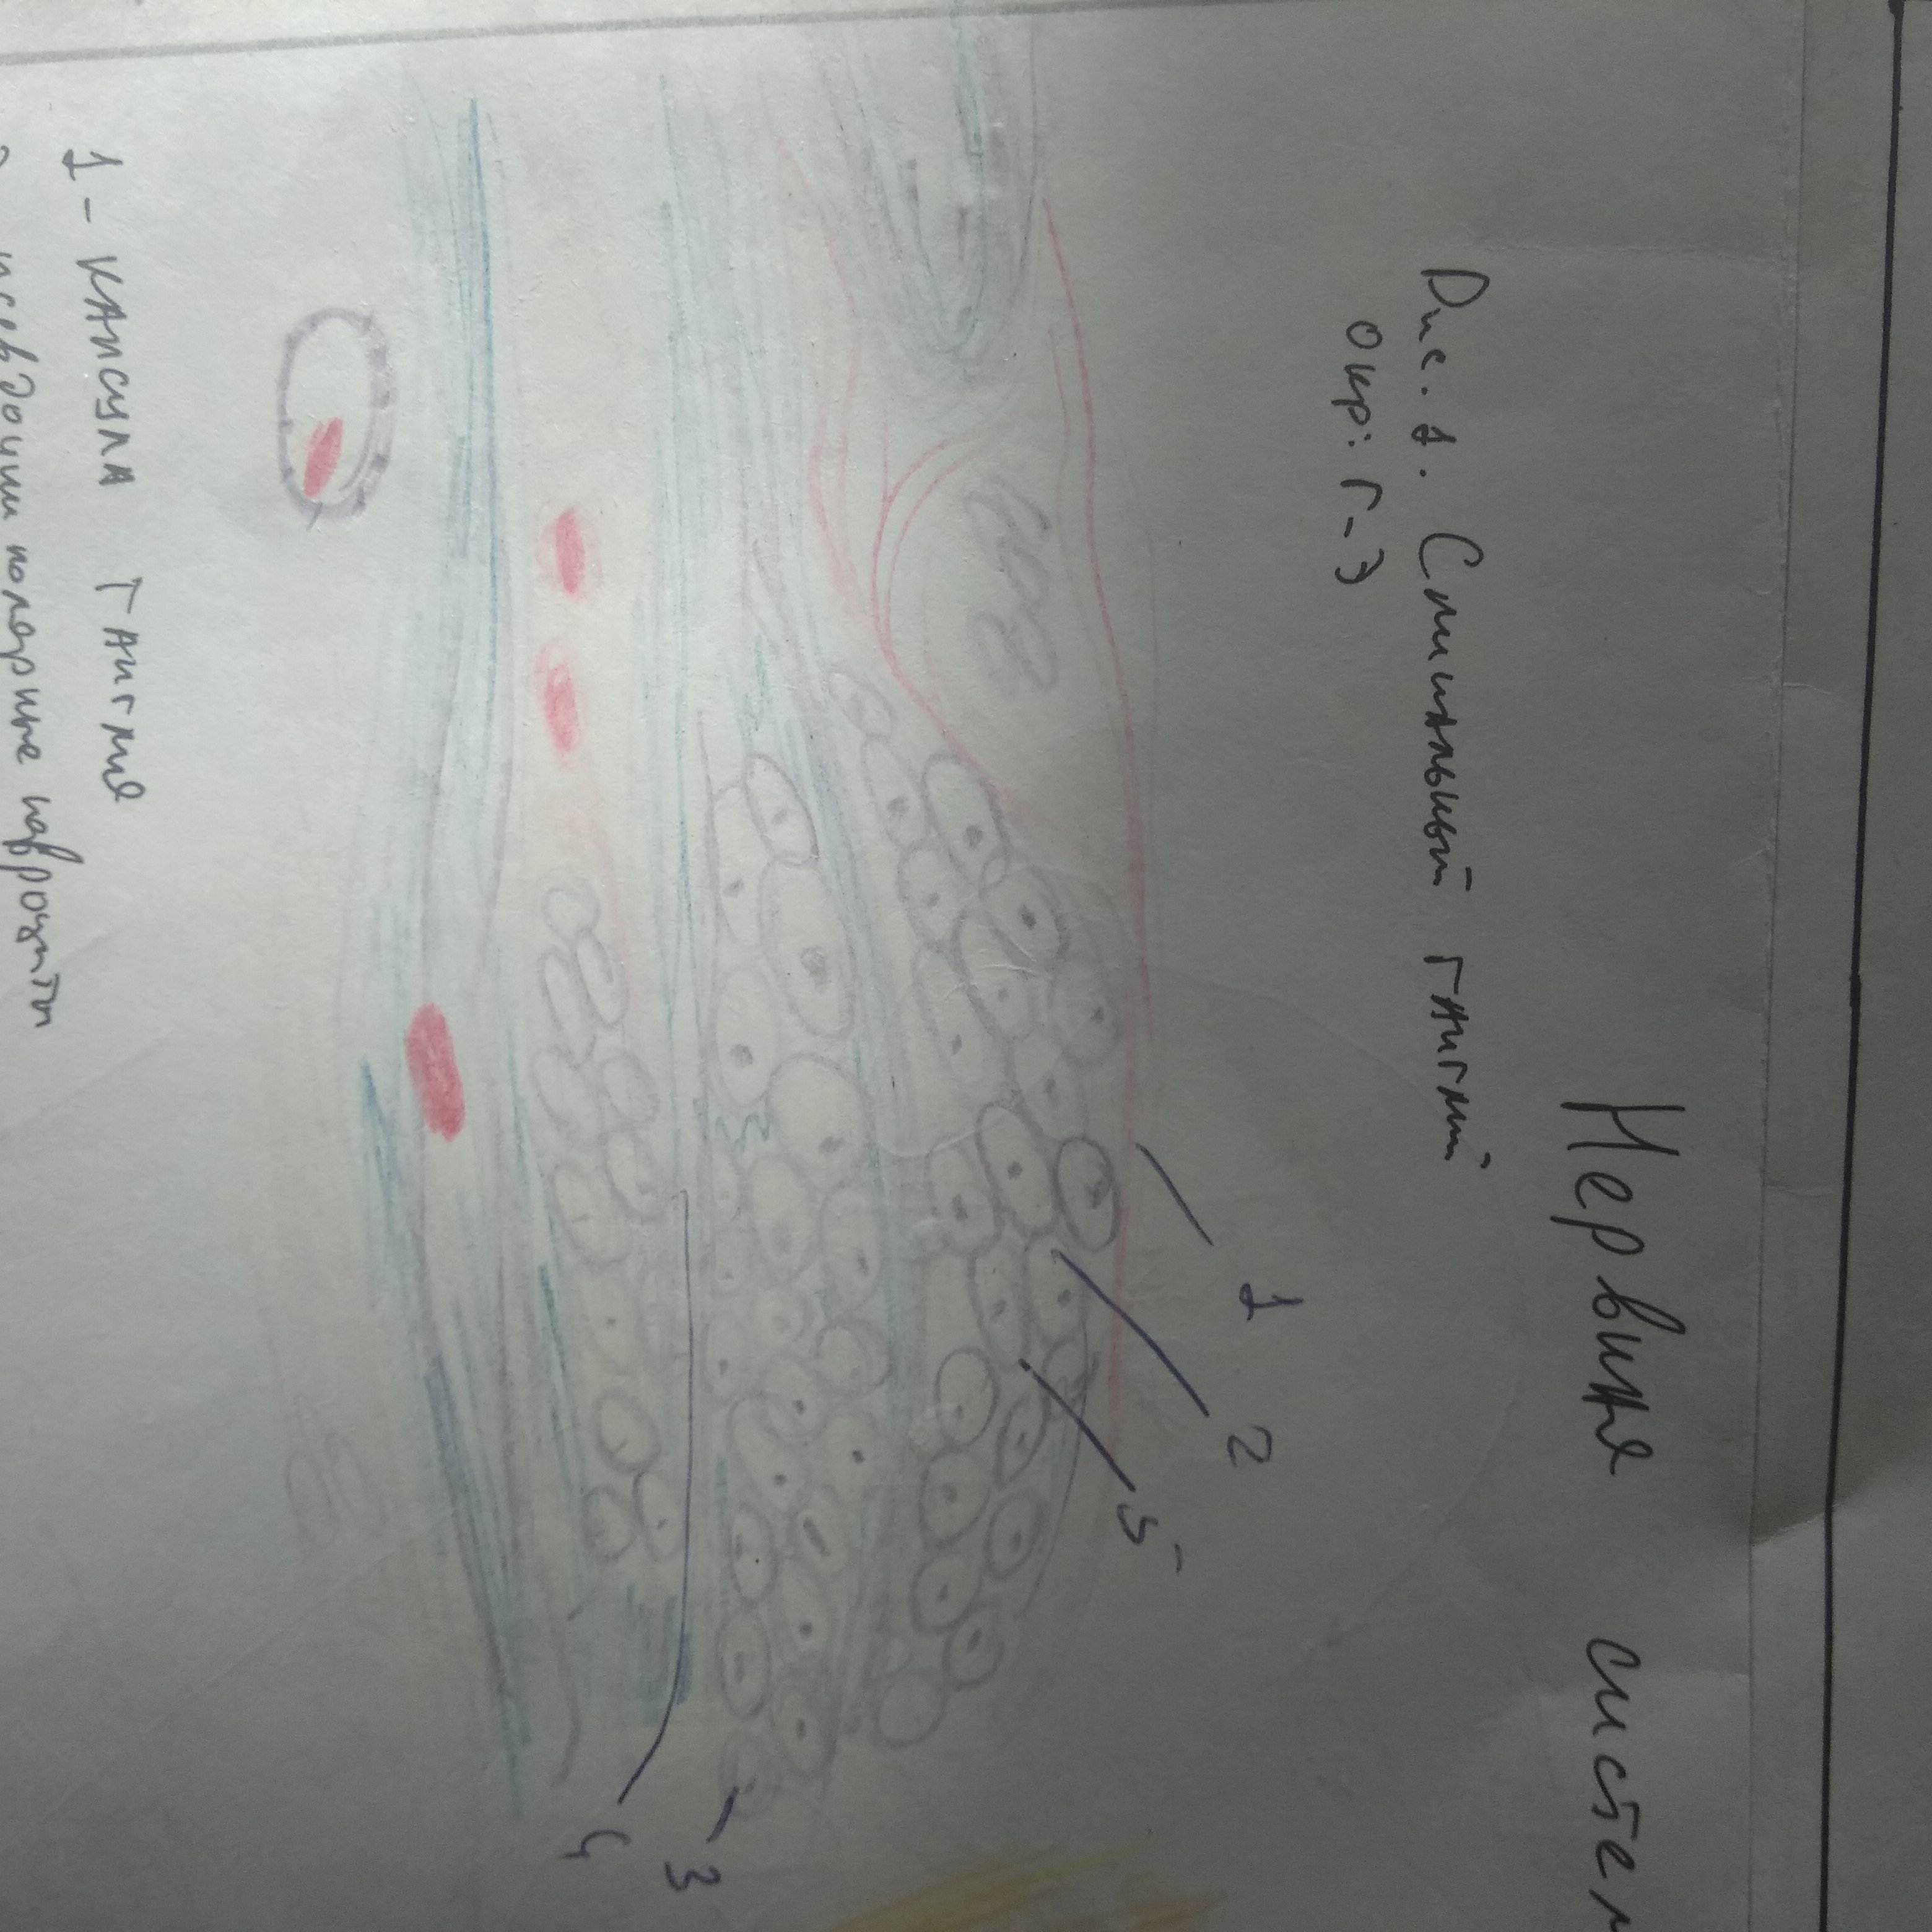 Нервная систем
Рис. 1. Спинальный ганглий
окр: Г-Э
1
2
5
3
4
1 - капсула ганглия
псевдоуниполярные нейроциты